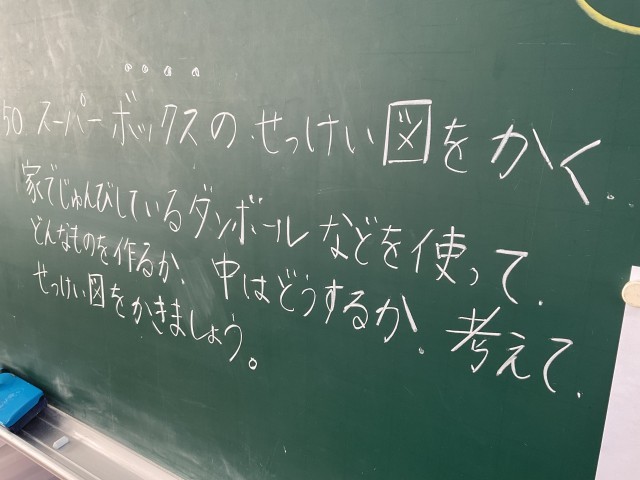 50 スーパーボックスの せっけい図をかく
家でじゅんびしているダンボールなどを使って、
どんなものを作るか、中はどうするか、考えて、
せっけい図をかきましょう。